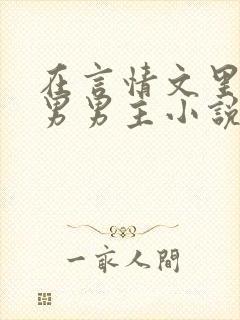 在言情文里
男男主小說
一家人間